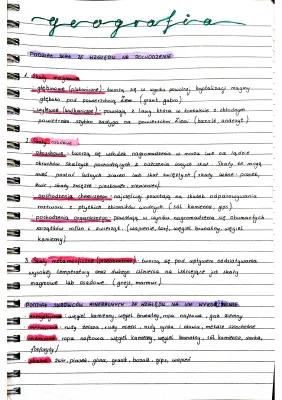 geografia
PODZIAŁ SKAŁ ZE WZGLĘDU NA POCHODZENIE
1. Skały magmowe
głębinowe (plutoniczne): tworzą się w wyniku powolnej krystalizacji magmy
głęboko pod powierzchnią Ziemi (granit, gabro)
wylewne (wulkaniczne): powstają z lawy, która w kontakcie z chłodnym
powietrzem szybko zastyga na powierzchni Ziemi (bazalt, andezyt)
2. Skały osadowe
okruchowe: tworzą się wskutek nagromadzenia w morzu lub na lądzie
okruchów skalnych pochodzących z niszczenia innych skał. Skały te mogą
mieć postać luźnych ziaren lub skał zwięzłych (skały luźne: piasek,
żwir, skały zwięzłe: piaskowiec, zlepieniec)
pochodzenia chemicznego: najczęściej powstają na skutek odparowywania
roztworu z płytkich zbiorników wodnych (sól kamienna, gips)
pochodzenia organicznego: powstają w wyniku nagromadzenia się obumarłych
szczątków roślin i zwierząt (wapienie, torf, węgiel brunatny, węgiel
kamienny)
3. Skały metamorficzne (przeobrażone): tworzą się pod wpływem oddziaływania
wysokiej temperatury oraz dużego ciśnienia na istniejące już skały
magmowe lub osadowe (gnejs, marmur)
PODZIAŁ SUROWCÓW MINERALNYCH ZE WZGLĘDU NA ICH WYKORZYSTANIE
energetyczne: węgiel kamienny, węgiel brunatny, ropa naftowa, gaz ziemny
metaliczne: rudy żelaza, rudy miedzi, rudy cynku i ołowiu, metale szlachetne
chemiczne: ropa naftowa, węgiel kamienny, węgiel brunatny, sól kamienna, siarka,
fosforyty
skalne: żwir, piasek, glina, granit, bazalt, gips, wapień